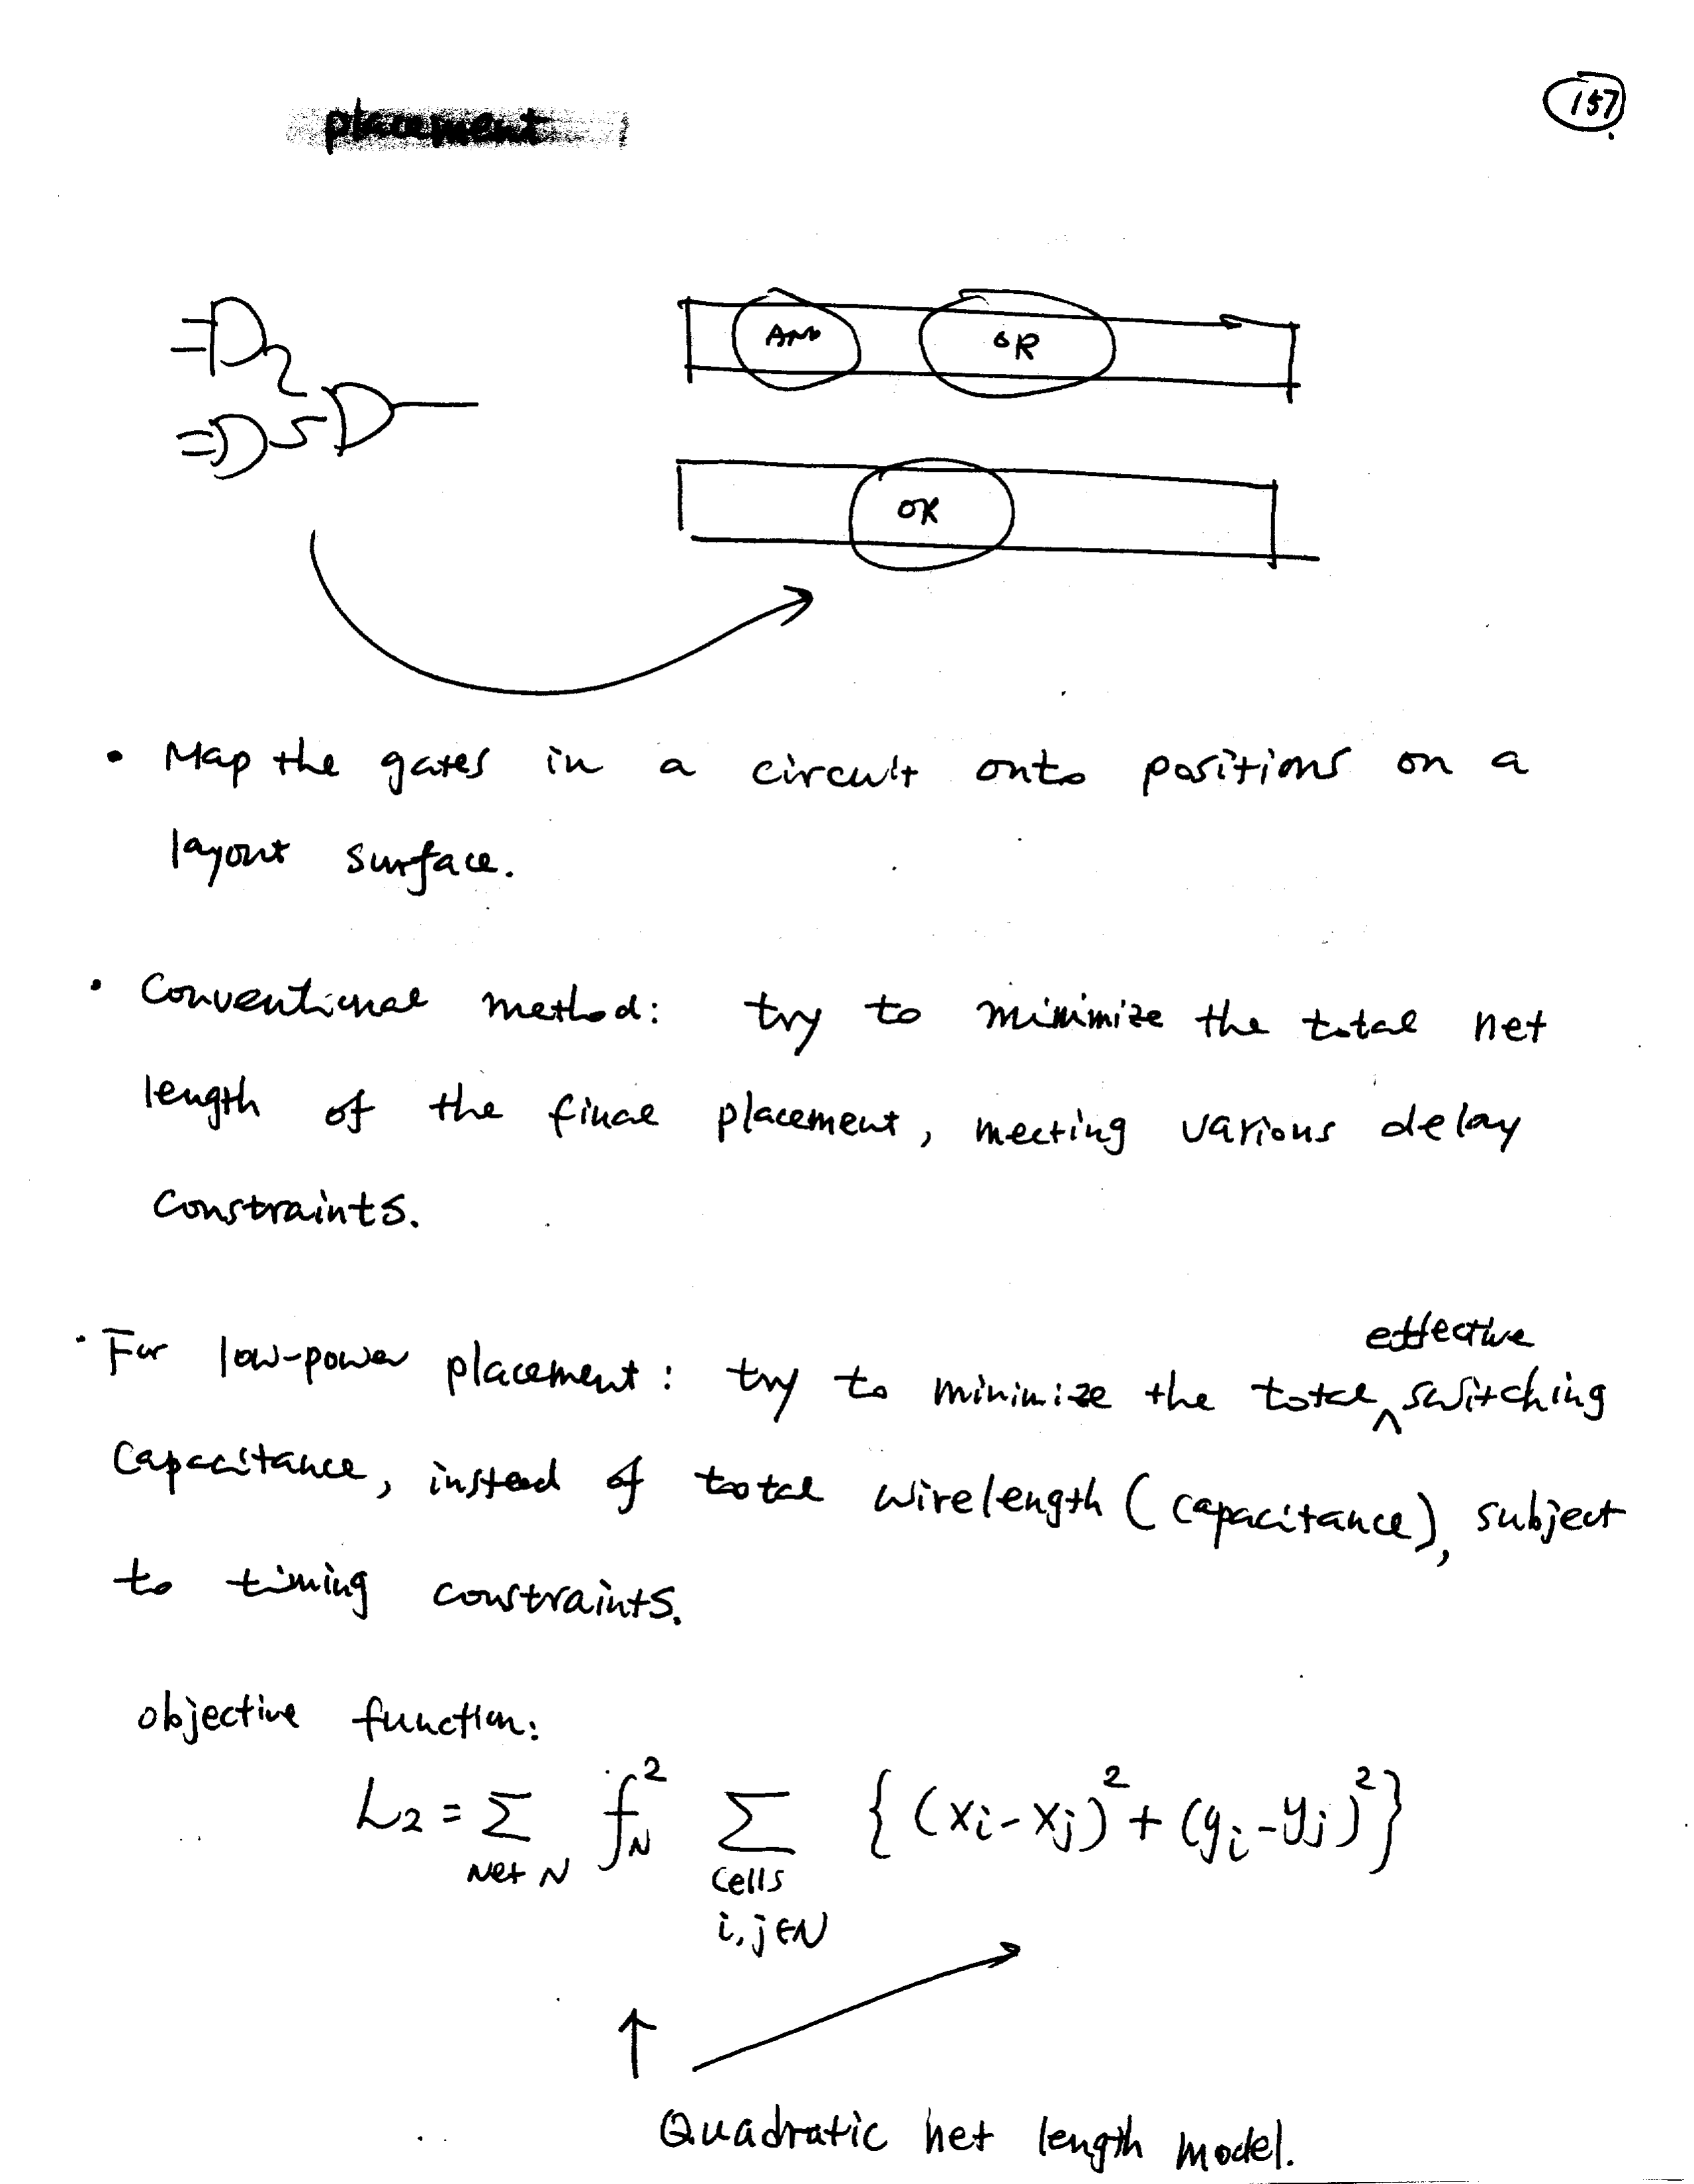 placement
157
AND
OR
OR
• Map the gates in a circuit onto positions on a
layout surface.
• Conventional method: try to minimize the total net
length of the final placement, meeting various delay
constraints.
effective
• For low-power placement: try to minimize the total ^ switching
Capacitance, instead of total wirelength (capacitance), subject
to timing constraints.
objective function:
L₂ = Σ f_N² Σ { (xᵢ - xⱼ)² + (yᵢ - yⱼ)² }
Net N cells
i, j ∈ N
Quadratic net length model.